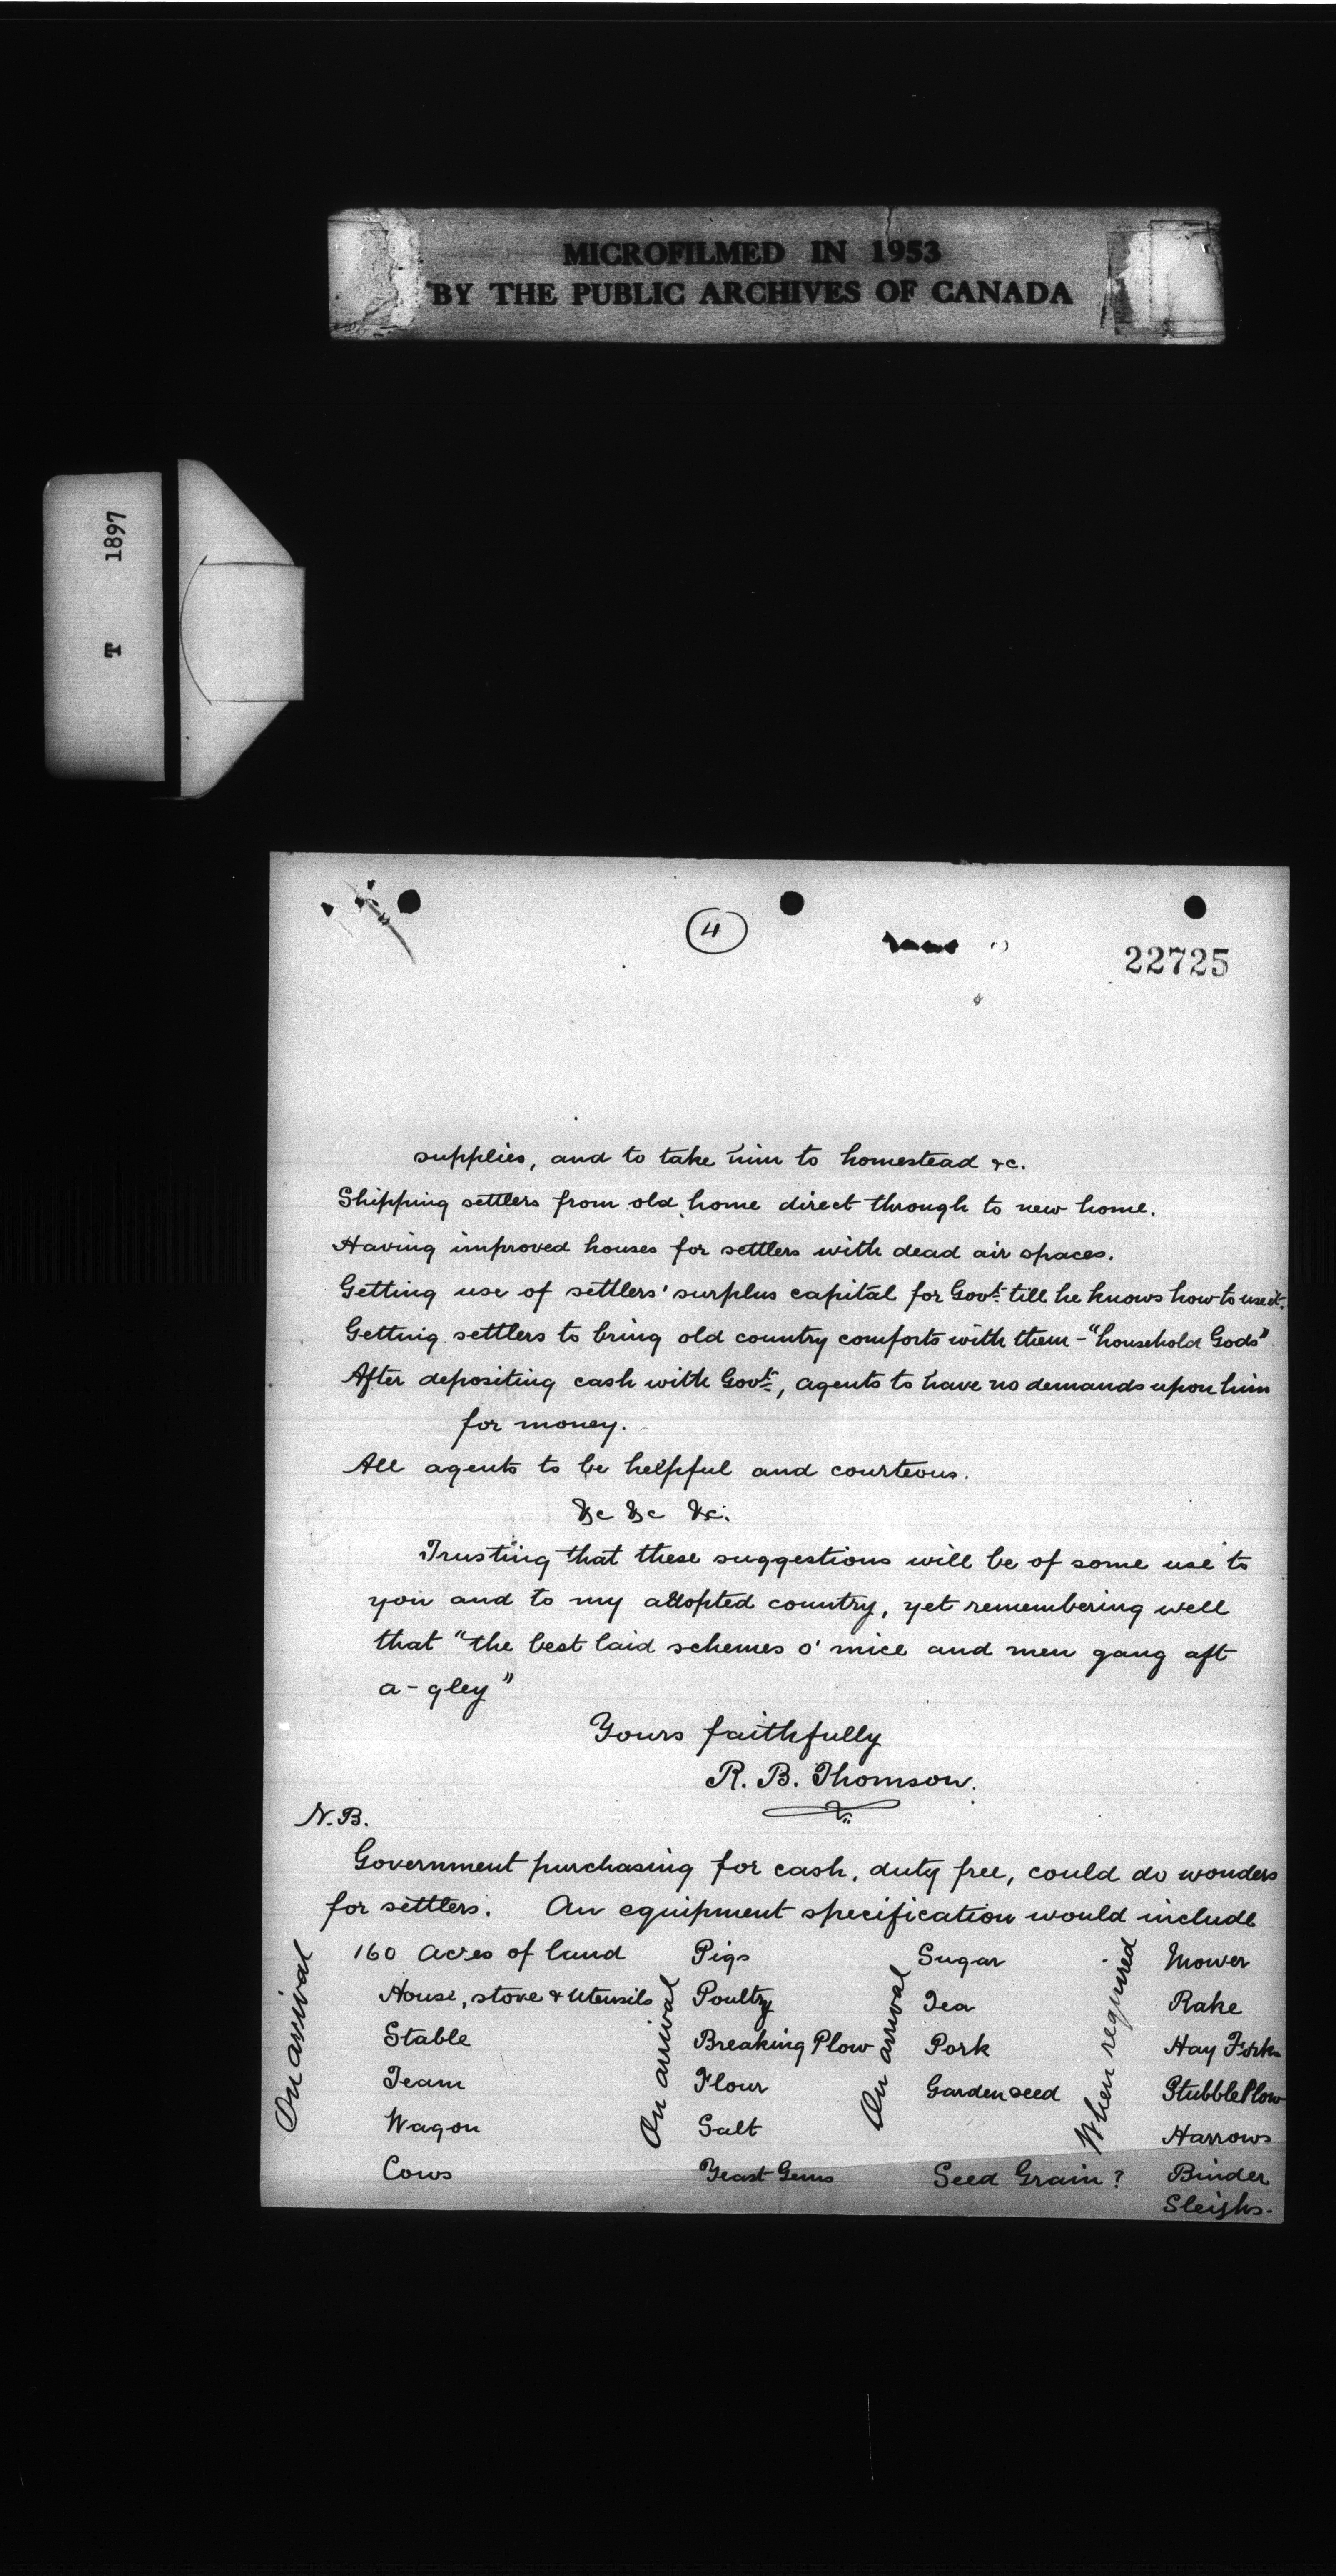 MICROFILMED IN 1953
BY THE PUBLIC ARCHIVES OF CANADA
T 1897
4
22725
supplies, and to take him to homestead &c.
Shipping settlers from old home direct through to new home.
Having improved houses for settlers with dead air spaces.
Getting use of settlers' surplus capital for Govt. till he knows how to use it.
Getting settlers to bring old country comforts with them - "household Gods"
After depositing cash with Govt., agents to have no demands upon him
for money.
All agents to be helpful and courteous.
&c &c &c.
Trusting that these suggestions will be of some use to
you and to my adopted country, yet remembering well
that "the best laid schemes o' mice and men gang aft
a-gley"
Yours faithfully
R. B. Thomson.
N.B.
Government purchasing for cash, duty free, could do wonders
for settlers. An equipment specification would include
On arrival
160 acres of land
House, stove & utensils
Stable
Team
Wagon
Cows
On arrival
Pigs
Poultry
Breaking Plow
Flour
Salt
Yeast Gems
On arrival
Sugar
Tea
Pork
Garden seed
Seed Grain?
When required
Mower
Rake
Hay Forks
Stubble Plow
Harrows
Binder
Sleighs.